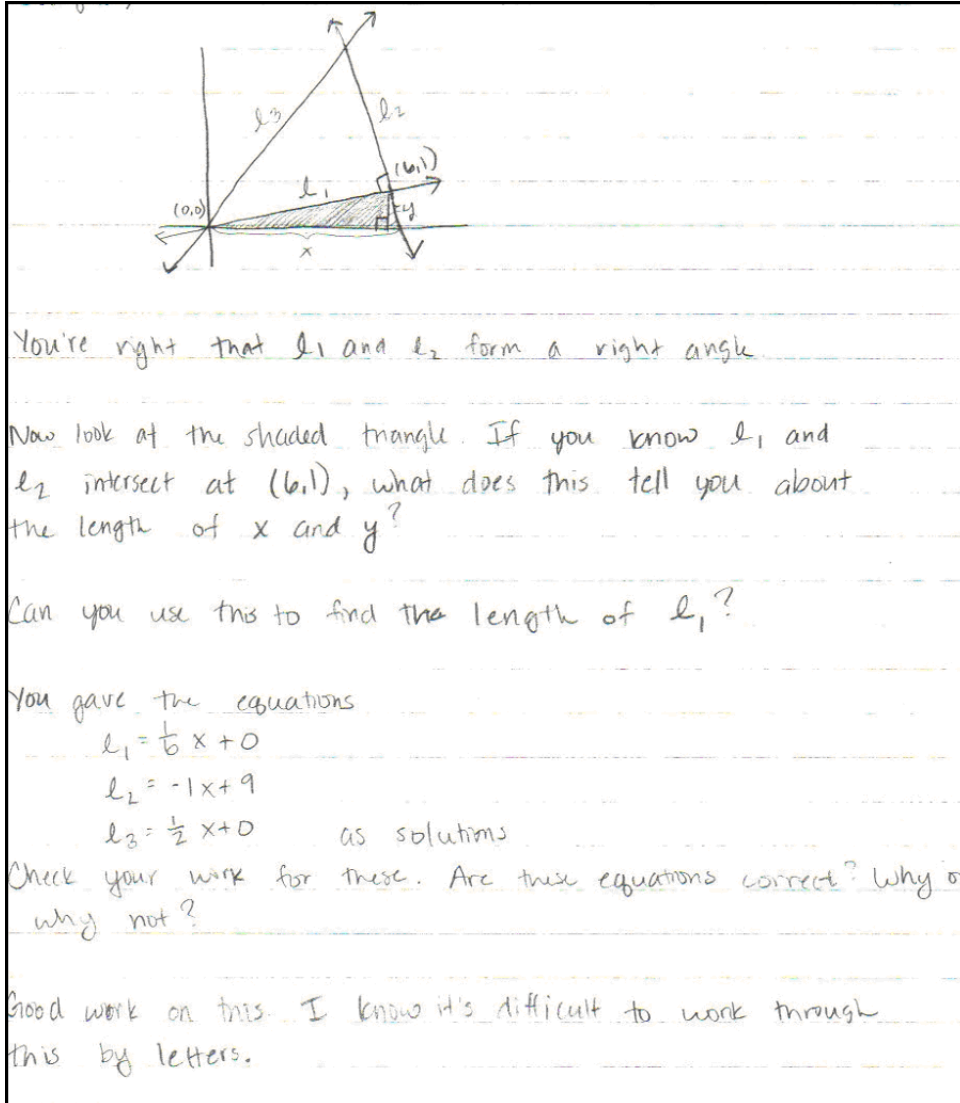 l3
l2
(6,1)
l1
(0,0)
y
x
You're right that l1 and l2 form a right angle
Now look at the shaded triangle. If you know l1 and
l2 intersect at (6,1), what does this tell you about
the length of x and y?
Can you use this to find the length of l1?
You gave the equations
l1 = 1/6 x + 0
l2 = -1x + 9
l3 = 1/2 x + 0 as solutions
Check your work for these. Are these equations correct? Why or
why not?
Good work on this. I know it's difficult to work through
this by letters.